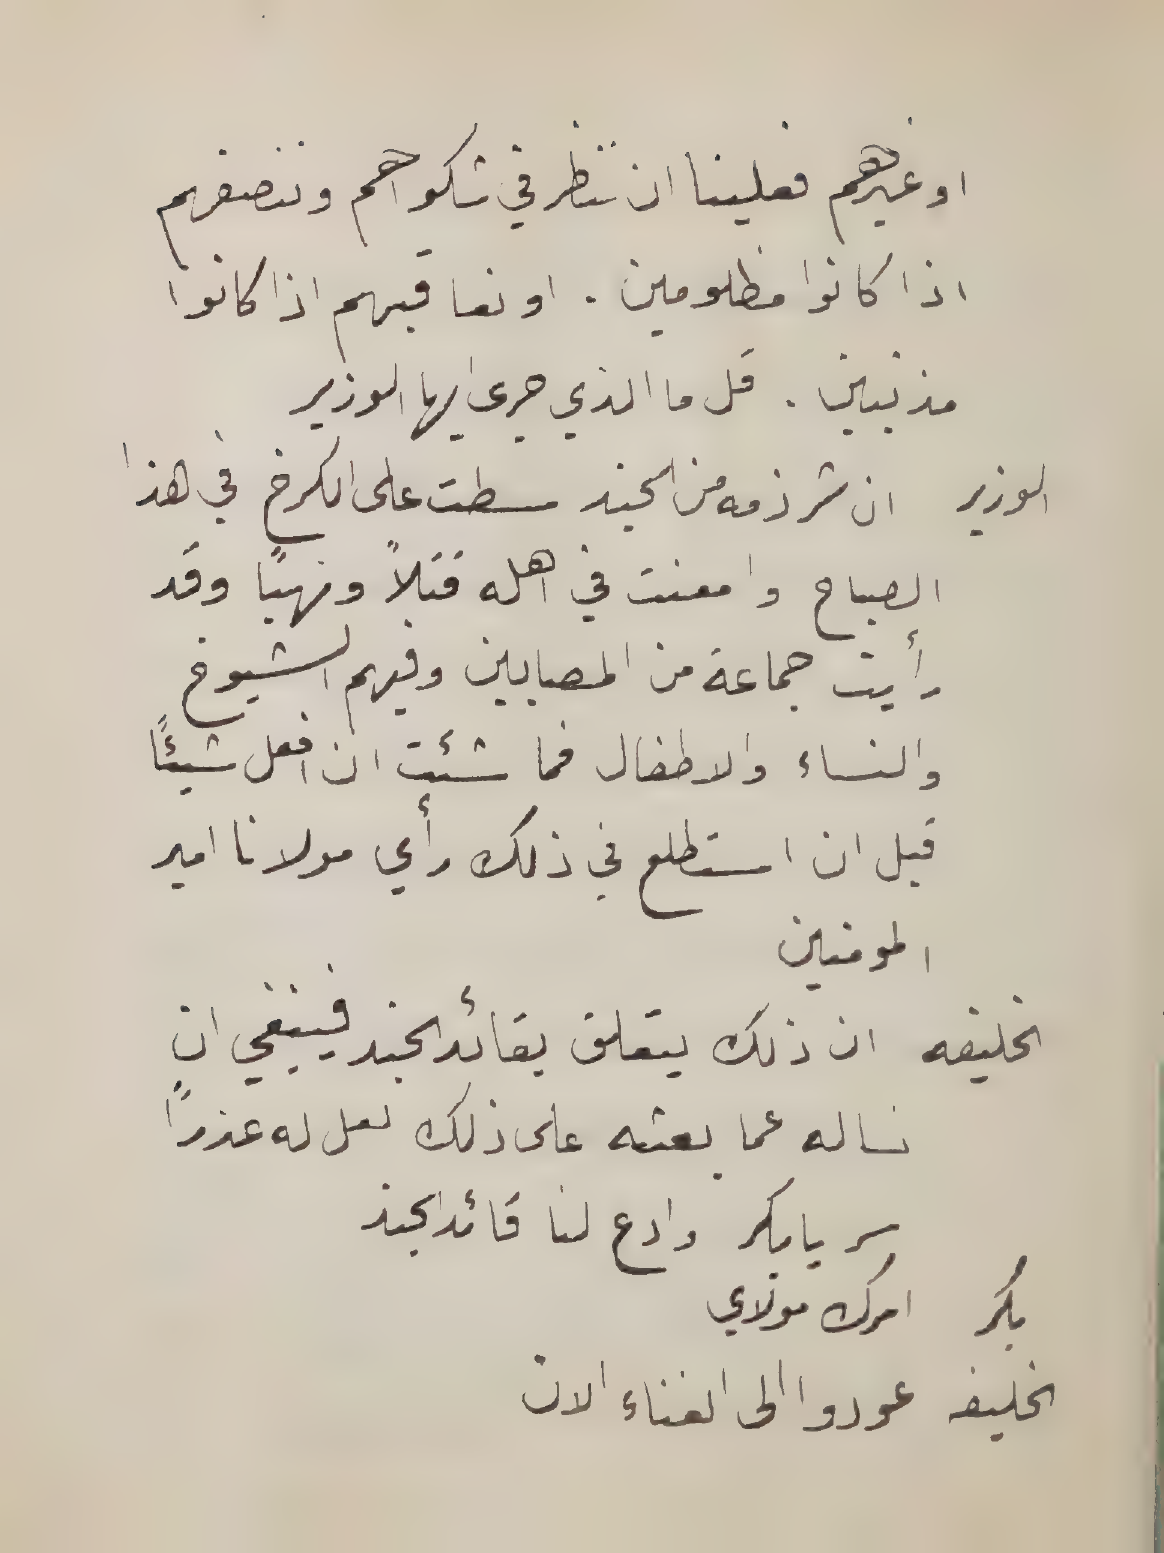 او غيرهم فعلينا ان ننظر في شكواهم وننصفهم
اذا كانوا مظلومين . او نعاقبهم اذا كانوا
مذنبين . قل ما الذي جرى ايها الوزير
الوزير ان شرذمه من الجند سطت على الكرخ في هذا
الصباح وامعنت في اهله قتلاً ونهبًا وقد
رأيت جماعة من المصابين وفيهم الشيوخ
والنساء والاطفال فما شئت ان افعل شيئًا
قبل ان استطلع في ذلك رأي مولانا امير
المومنين
الخليفه ان ذلك يتعلق بقائد الجند فينبغي ان
نساله عما بعثه على ذلك لعل له عذرًا
سر يابكر وادع لنا قائد الجند
بكر امرك مولاي
الخليفه عودوا الى الغناء الان